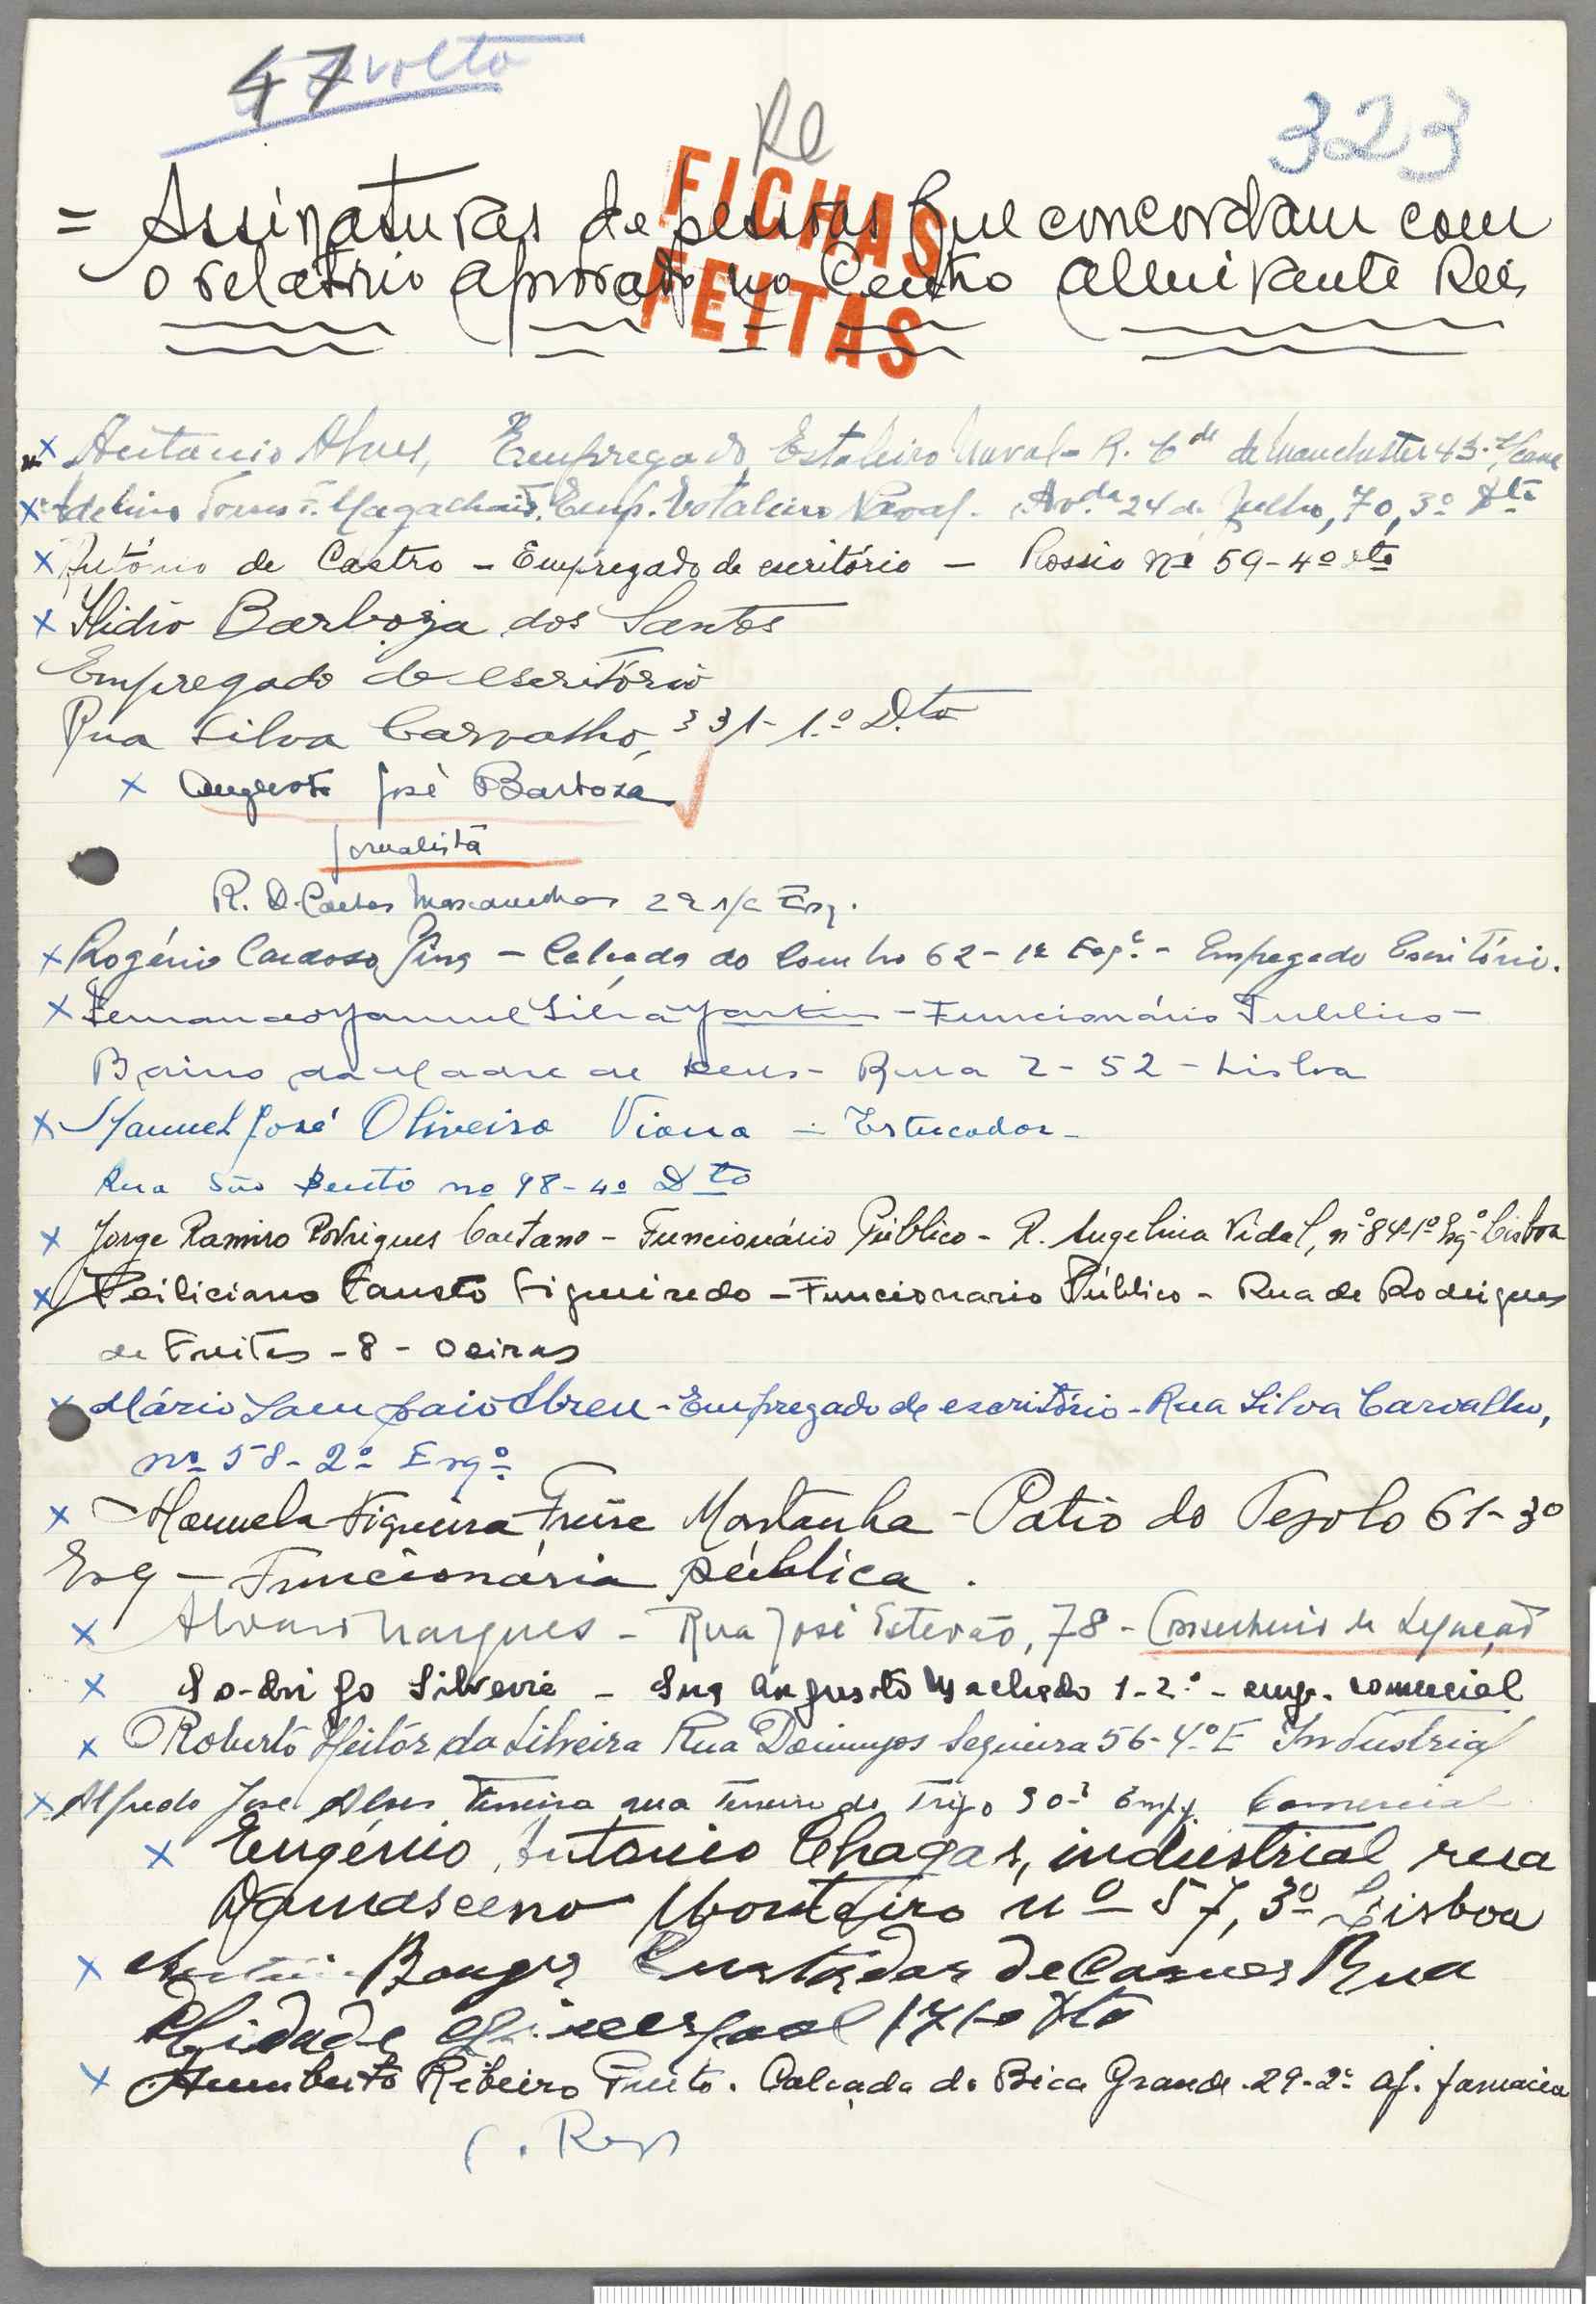 47 volto
Re
323
FICHAS
FEITAS
= Assinaturas de pessoas que concordam com
o relatório aprovado no Centro Almirante Reis
x António Alves, Empregado Estaleiro Naval - R. de Manchester 43-
x Adelino Magalhães, Emp. Estaleiro Naval - Avda 24 de Julho, 70, 3º Dto
x António de Castro - Empregado de escritório - Rossio nº 59-4º dto
x Ilidio Barboza dos Santos
Empregado de escritório
Rua Silva Carvalho, 331-1.º D.to
x Augusto José Barboza
Jornalista
R. D. Carlos Mascarenhas 22 r/c Esq.
x Rogério Cardoso Pina - Calçada do Combro 62 - 1º Esqº. - Empregado Escritório.
x Fernando Manuel Silva Martins - Funcionário Publico -
Bairro da Madre de Deus - Rua 2 - 52 - Lisboa
x Manuel José Oliveira Viana - Estucador -
Rua São Bento nº 98-4º Dto
x Jorge Ramiro Rodrigues Caetano - Funcionário Público - R. Angelina Vidal, nº 84-1º Esqº Lisboa
x Feiliciano Fausto Figueiredo - Funcionario Público - Rua de Rodrigues
de Freitas - 8 - Oeiras
x Mário Sampaio Abreu - Empregado de escritório - Rua Silva Carvalho,
nº 58-2º Esqº
x Manuela Figueira Freire Montanha - Patio do Tejolo 61-3º
Esq - Funcionária pública.
x Alvaro Marques - Rua José Estevão, 78 - Conselheiro de Legação
x Rodrigo Silveira - Rua Augusto Machado 1-2.º - emp. comercial
x Roberto Heitôr da Silveira Rua Domingos Sequeira 56-4.º E Industrial
x Alfredo José Alves Ferreira rua Terreiro do Trigo 30-3 Empg. Comercial
x Eugénio António Chagas, industrial, rua
Damasceno Monteiro nº 57, 3º Lisboa
x Borges Cortador de Carnes Rua
Cidade 17 1º Dto
x Humberto Ribeiro Preto. Calçada da Bica Grande - 29-2º aj. farmacia